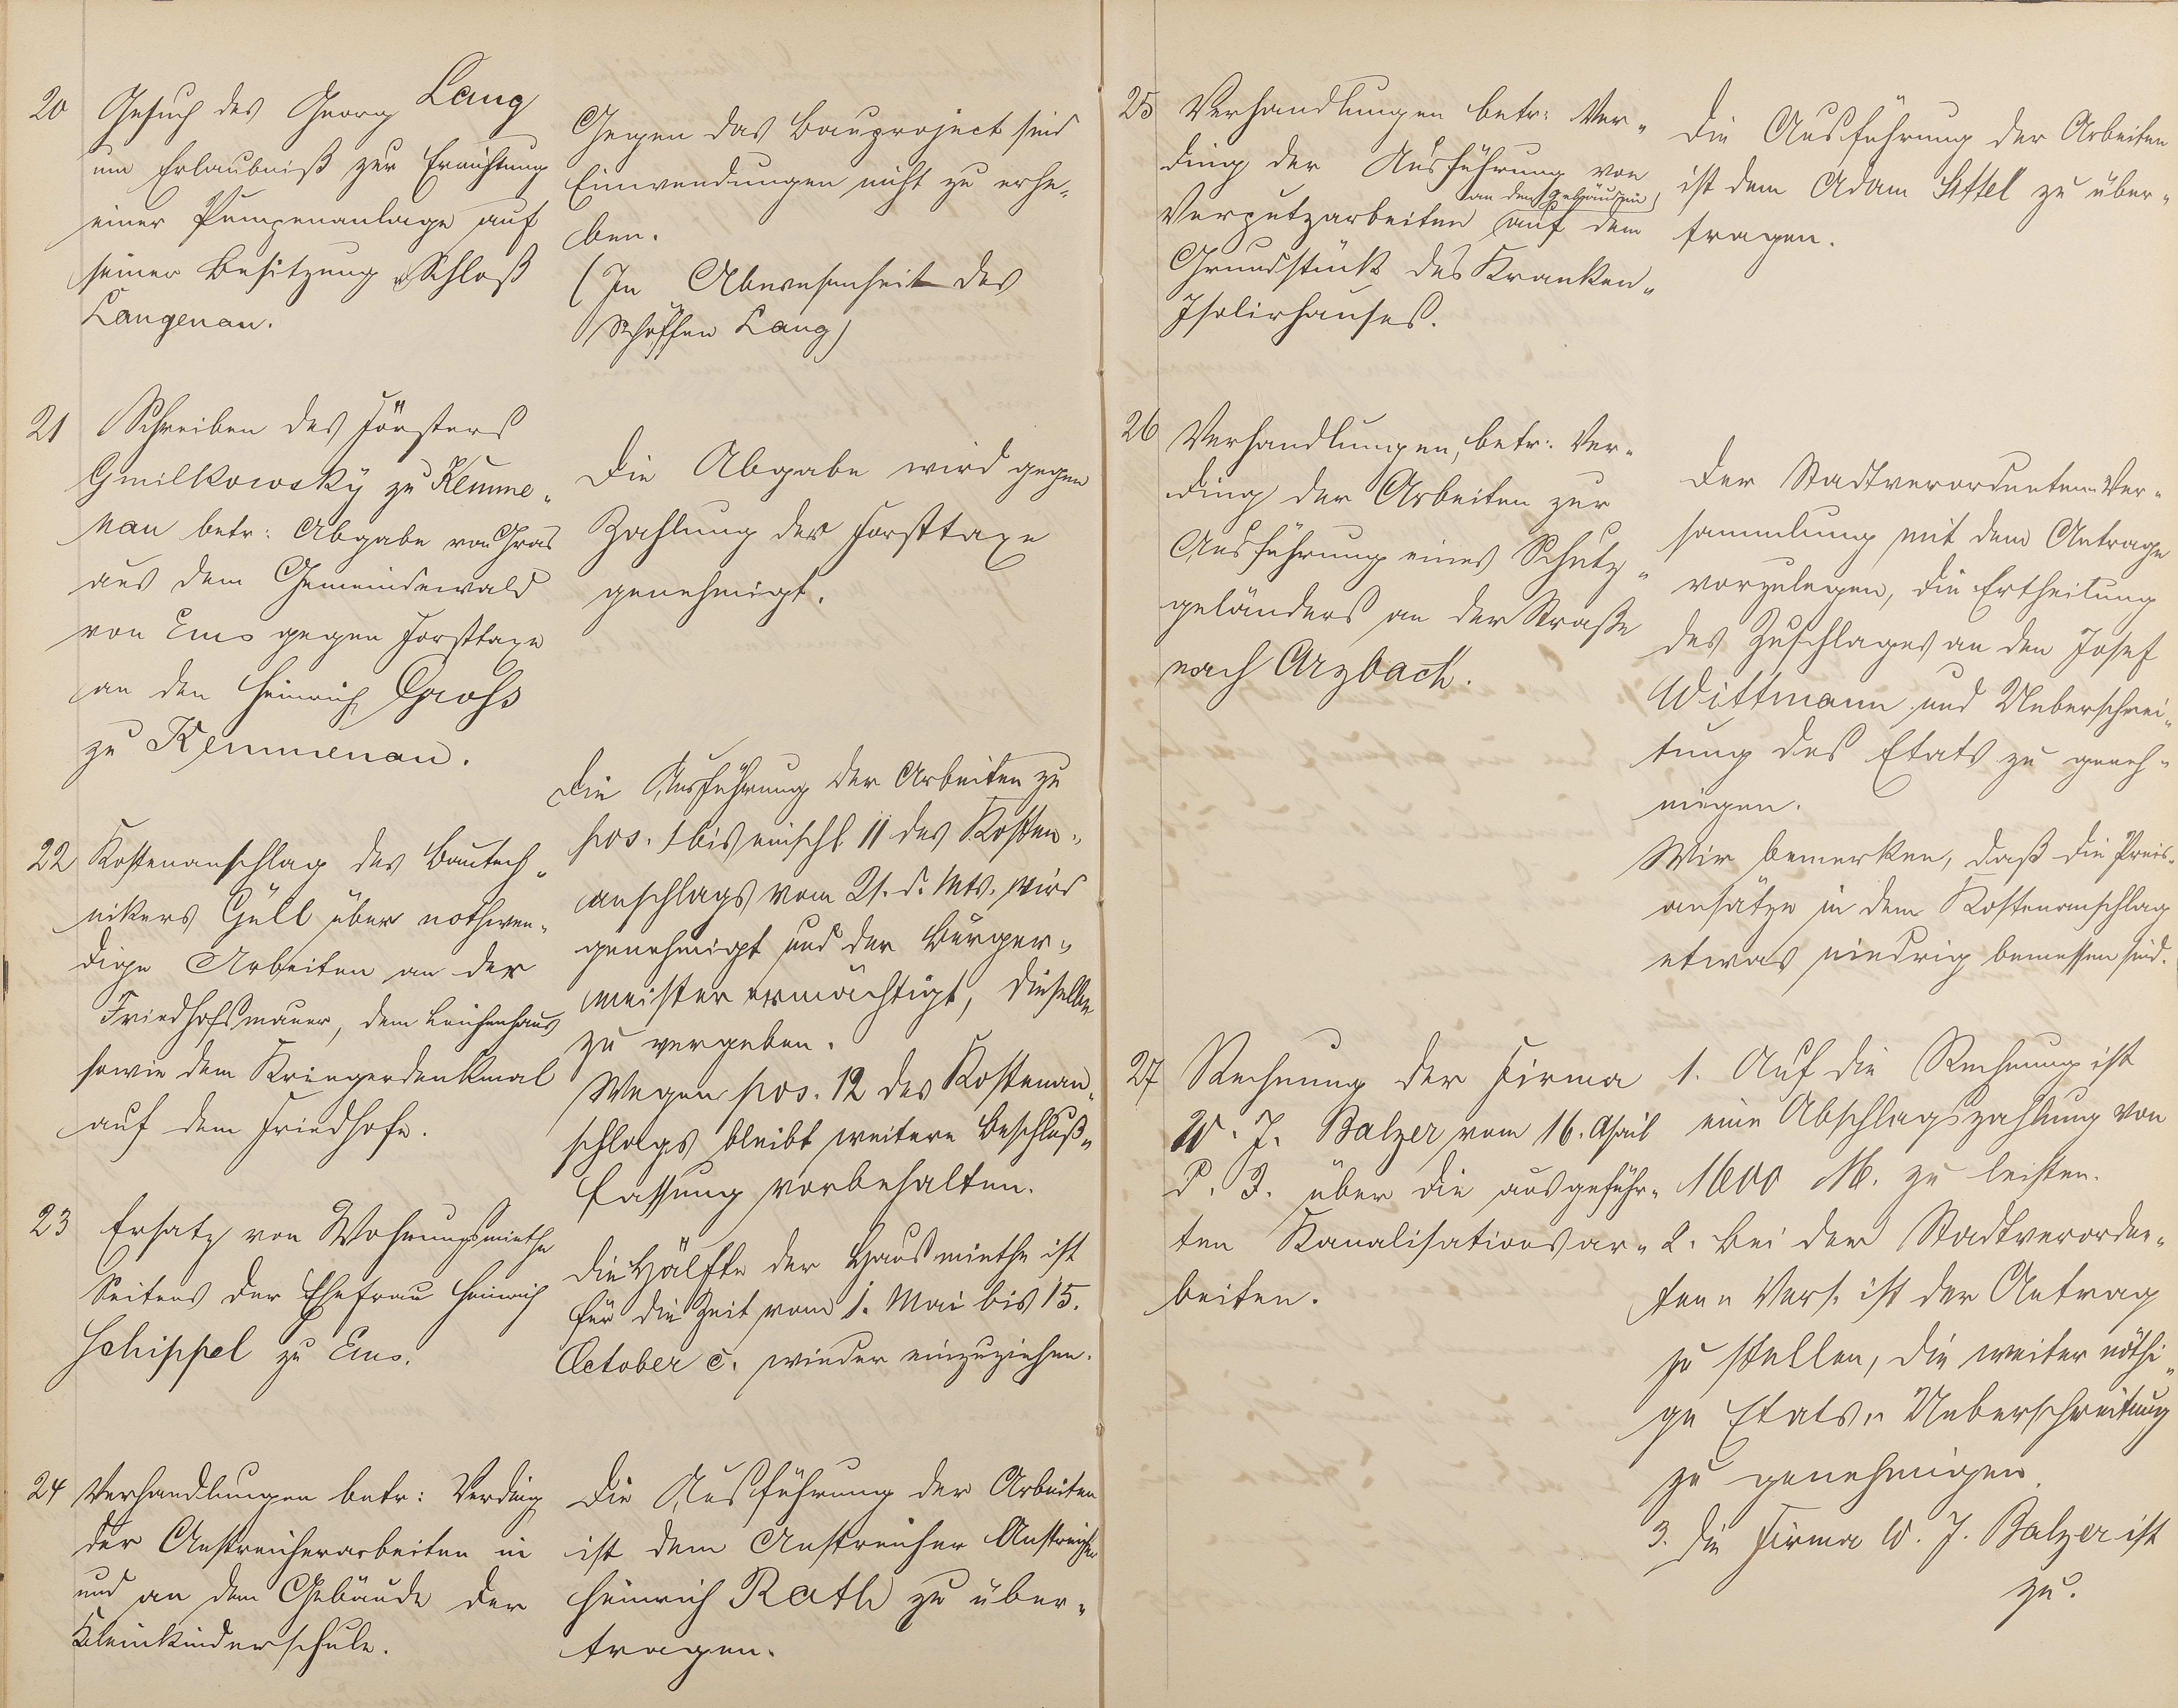 20 Gesuch des Georg Lang
um Erlaubniß zur Errichtung
einer Pumpenanlage auf
seiner Besitzung Schloß
Langenau.
Gegen das Bauproject sind
Einwendungen nicht zu erhe-
ben.
(In Abwesenheit des
Schöffen Lang)
21 Schreiben des Försters
Gmilkowsky zu Kemme-
nau betr: Abgabe von Gras
aus dem Gemeindewald
von Ems gegen Forsttaxe
an den Heinrich Groß
zu Kemmenau.
Die Abgabe wird gegen
Zahlung der Forsttaxe
genehmigt.
22 Kostenanschlag des Bautech-
nikers Güll über nothwen-
dige Arbeiten an der
Friedhofsmauer, dem Leichenhaus
sowie dem Kriegerdenkmal
auf dem Friedhofe.
Die Ausführung der Arbeiten zu
pos. 1 bis einschl 11 des Kosten-
anschlags vom 21. d. Mts. wird
genehmigt und der Bürger-
meister ermächtigt, dieselben
zu vergeben.
Wegen pos. 12 des Kostenan-
schlags bleibt weitere Beschluß-
fassung vorbehalten.
23 Ersatz von Wohnungsmiethe
Seitens der Ehefrau Heinrich
Schippel zu Ems.
Die Hälfte der Hausmiethe ist
für die Zeit vom 1. Mai bis 15.
October c. wieder einzuziehen.
24 Verhandlungen betr: Verding
der Anstreicherarbeiten in
und an dem Gebäude der
Kleinkinderschule.
Die Ausführung der Arbeiten
ist dem Anstreicher Anstreicher
Heinrich Rath zu über-
tragen.
25 Verhandlungen betr: Ver-
ding der Ausführung von
an den Gebäuden
Verputzarbeiten auf dem
Grundstück des Kranken-
Isolirhauses.
Die Ausführung der Arbeiten
ist dem Adam zu über-
tragen.
26 Verhandlungen, betr: Ver-
ding der Arbeiten zur
Ausführung eines Schutz-
geländers an der Straße
nach Arzbach.
Der Stadtverordneten-Ver-
sammlung mit dem Antrage
vorzulegen, die Ertheilung
des Zuschlages an den Josef
Wittmann und Ueberschrei-
tung des Etats zu geneh-
migen.
Wir bemerken, daß die Preis-
ansätze in dem Kostenanschlag
etwas niedrig bemessen sind.
27 Rechnung der Firma
W. J. Balzer vom 16. April
d. J. über die ausgeführ-
ten Kanalisationsar-
beiten.
1. Auf die Rechnung ist
eine Abschlagszahlung von
1600 M. zu leisten.
2. Bei der Stadtverordne-
ten- Vers. ist der Antrag
zu stellen, die weiter nöthi-
ge Etats- Ueberschreitung
zu genehmigen.
3. Die Firma W. J. Balzer ist
zu.